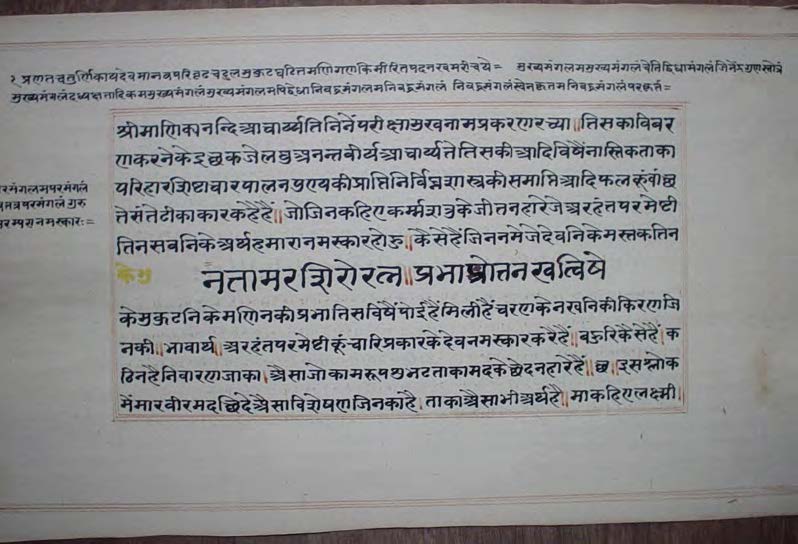 १ प्रणतचतुर्णिकायदेवमानवपरिवृढचटुलमुकुटघटितमणिगणकिर्मीरितपदनखमरीचये= मुख्यमंगलममुख्यमंगलंचेतिद्विधामंगलंजिनेंद्रगुणस्तोत्रं
मुख्यमंगलंदध्यक्षतादिकममुख्यमंगलंमुख्यमंगलमपिद्वेधानिबद्धमंगलमनिबद्धमंगलं निबद्धमंगलंस्वेनकृतमनिबद्धमंगलंपरकृतं=
श्रीमाणिकानन्दिआचार्य्यतिनिनेंपरीक्षामुखनामप्रकरणरच्या॥तिसकाविवर
णकरनेकेइछकजेलघुअनन्तवीर्यआचार्य्यतेतिसकीआदिविषैंनास्तिकताका
परिहारशिष्टाचारपालनपुण्यकीप्राप्तिनिर्विघ्नशास्त्रकीसमाप्तिआदिफलकूंवांछ
तेसंतेटीकाकारकहैहैं॥जोजिनकहिएकर्म्मशत्रुकेजीतनहारेजेअरहंतपरमेष्टी
तिनसबनिकेअर्थहमारानमस्कारहोऊ॥कैसेहैंजिननमेजेदेवनिकेमस्तकतिन
परमंगलमपरमंगलं
परमंगलंगुरु
परम्परानमस्कारः=
केमु
नतामरशिरोरत्न॥प्रभाप्रोतनखत्विषे
केमुकुटनिकेमणिनकीप्रभातिसविषैंपोईहैंमिलीहैंचरणकेनखनिकीकिरणजि
नकी॥भावार्थ॥अरहंतपरमेष्टीकूंच्यारिप्रकारकेदेवनमस्कारकरेहैं॥बहुरिकैसेहैं॥क
ठिनहैनिवारणजाका।अैसाजोकामरूपसुभटताकामदकेछेदनहारेहैं॥छ॥इसश्लोक
मेंमारवीरमदच्छिदेअैसाविशेषणजिनकाहै।ताकाअैसाभीअर्थहै॥माकहिएलक्ष्मी।